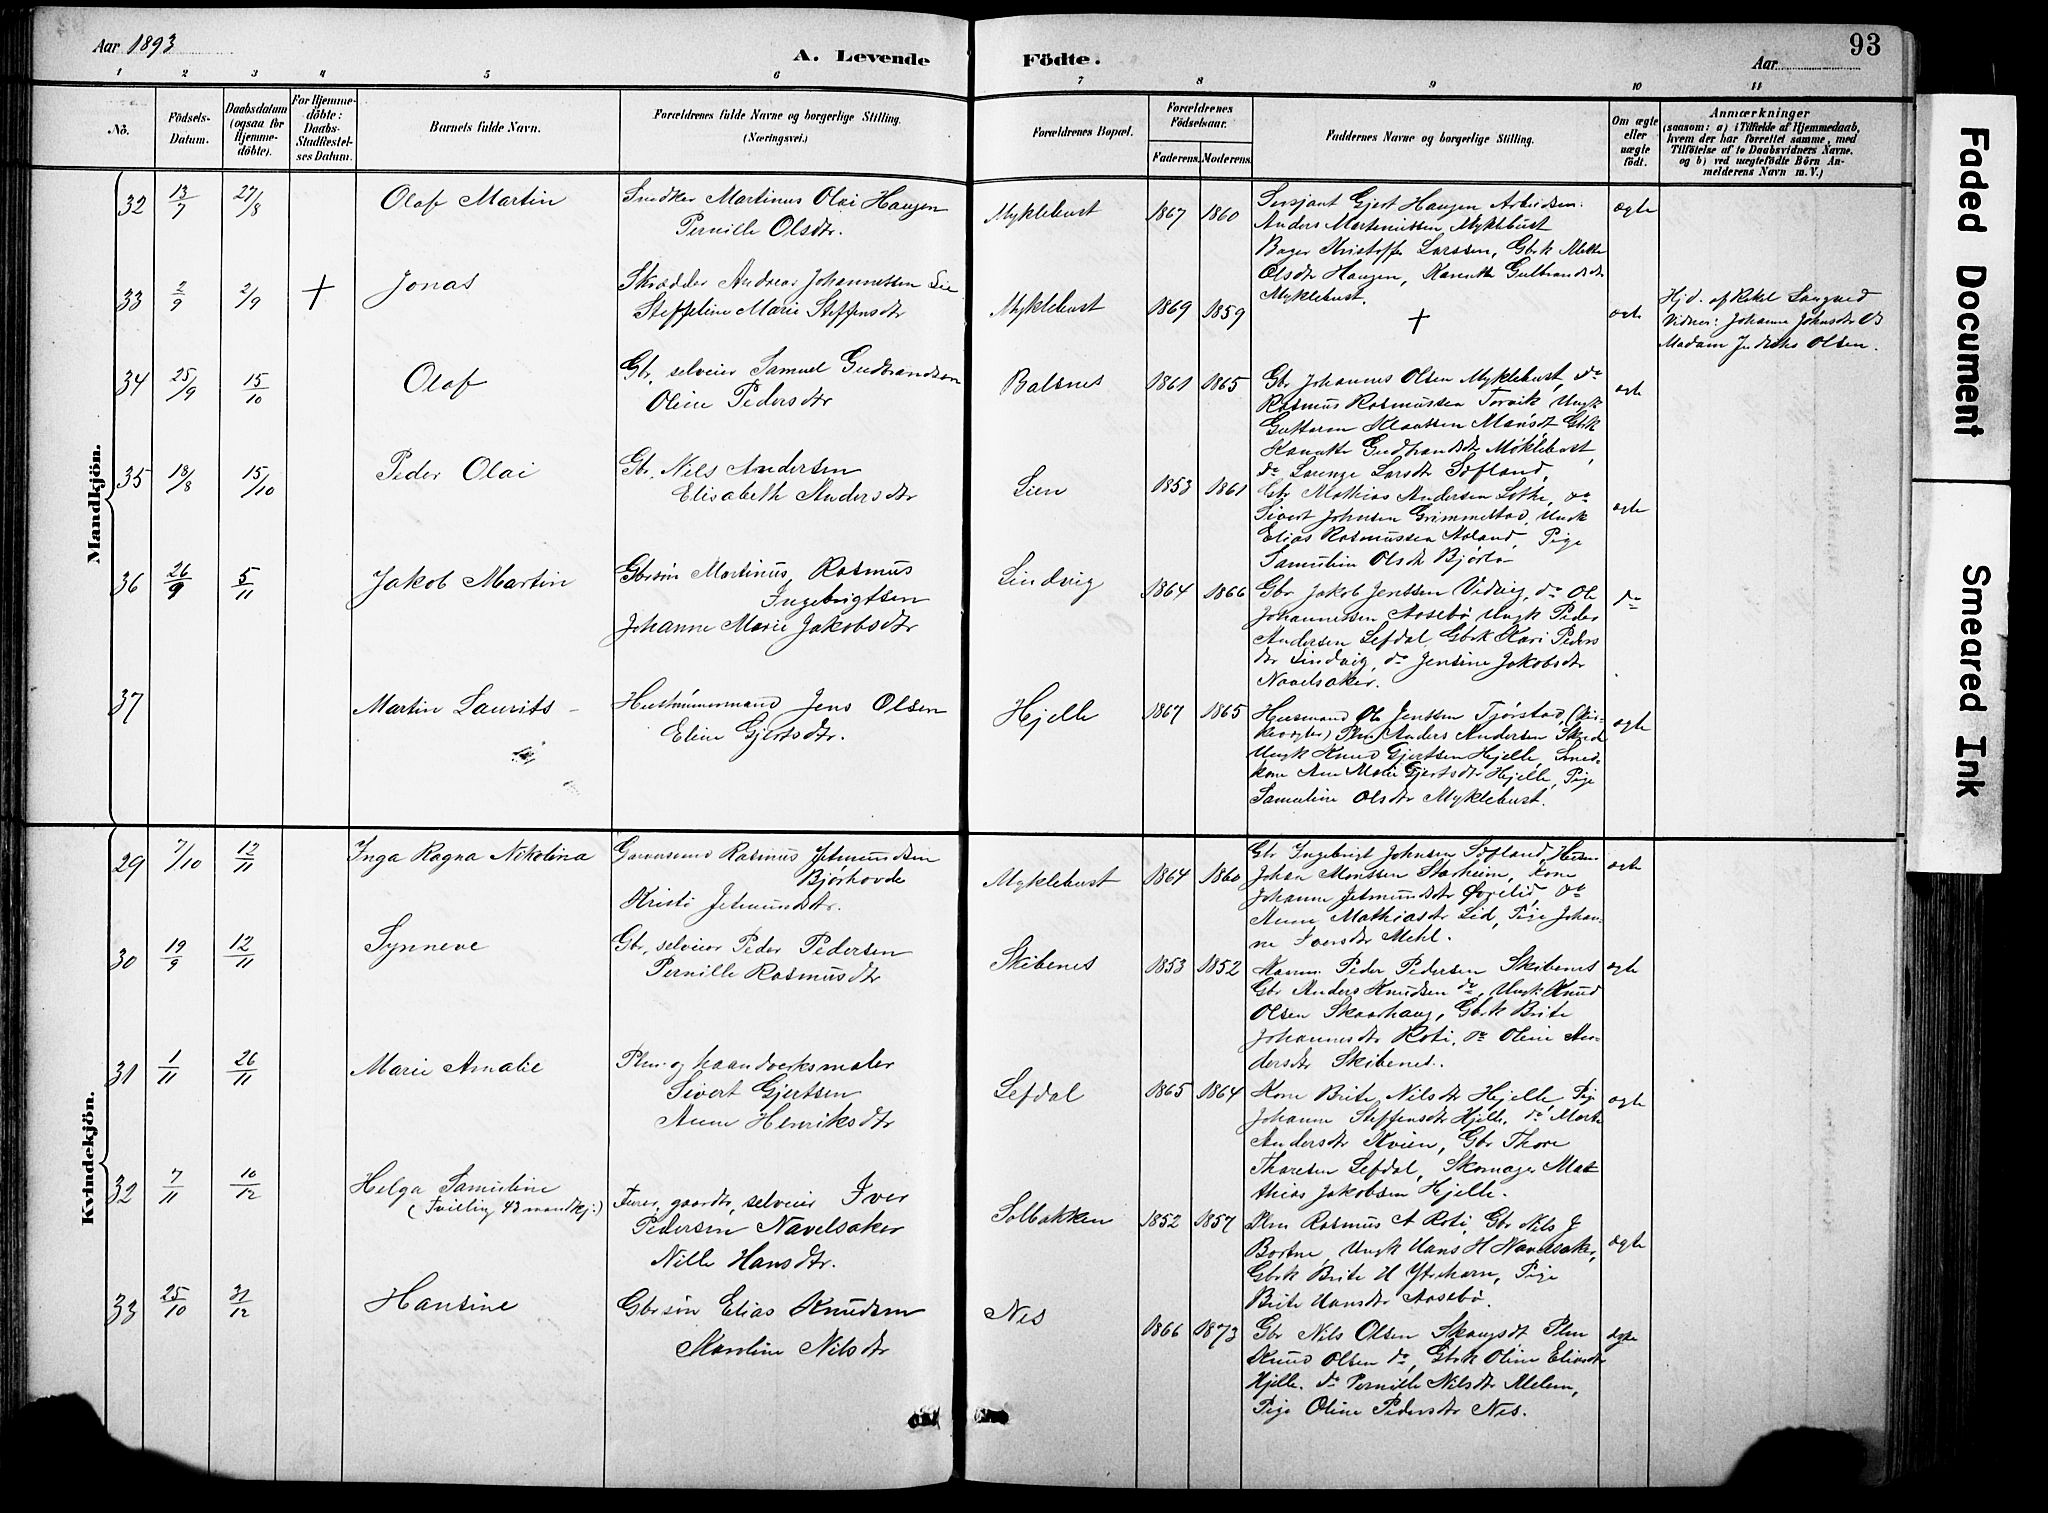 Aar 1893
A. Levende Födte.
Aar
93
Faded Document
Smeared Ink
1 2 3 4 5 6 7 8 9 10 11
No.
Födsels-
Datum.
Daabsdatum
(ogsaa for
Hjemme-
döbte).
For Hjemme-
döbte:
Daabs-
Stadfæstel-
ses Datum.
Barnets fulde Navn.
Forældrenes fulde Navne og borgerlige Stilling.
(Næringsvei.)
Forældrenes Bopæl.
Forældrenes
Födselsaar.
Faderens. Moderens.
Faddernes Navne og borgerlige Stilling.
Om ægte
eller
uægte
født.
Anmærkninger
(saasom: a) i Tilfælde af Hjemmedaab,
hvem der har forrettet samme, med
Tilföielse af to Daabsvidners Navne.
og b) ved uægtefödte Börn An-
melderens Navn m. V.)
Mandkjön.
32 13/7 27/8 Olaf Martin
Snedker Martinus Olai Haugen
Pernille Olsdtr.
Myklebust 1867 1860
Sersjant Gjert Haugen Arbeidsm.
Anders Martinussen Myklebust
Bager Kristoffer Larssen, Gbrk Mette
Olsdtr Haugen, Hanutte Gulbrandsdtr
Myklebust.
ægte
33 2/9 2/9 + Jonas
Skrædder Andreas Johannessen Lie
Steffeline Marie Steffensdtr
Myklebust 1869 1859
+
ægte
Hjd. af Rakel Langned
Vidner: Johanne Johnsdtr
Madam Olsen.
34 25/9 15/10 Olaf
Gbr, selveier Samuel Gudbrandson
Oline Pedersdtr
Balsnes 1861 1865
Gbr Johannes Olsen Myklebust, do
Rasmus Rasmussen Torvik Ungk
Guttorm Klaussen Mansdt Gbrk
Hanutte Gudbrandsdtr Möklebust,
do Lorense Larsdtr Sefland,
ægte
35 18/8 15/10 Peder Olai
Gbr. Nils Andersen
Elisabeth Andersdtr
Lien 1853 1861
Gbr Mathias Andersen Lothe, do
Sivert Johnsen Grimmestad, Ungk
Elias Rasmussen Aaland, Pige
Samuline Olsdtr Bjørlo
ægte
36 26/9 5/11 Jakob Martin
Gbrsön Martinus Rasmus
Ingebrigtsen
Johanne Marie Jakobsdtr
Lindvig 1864 1866
Gbr Jakob Jenssen Vedvig, do Ole
Johannessen Aasebö Ungk Peder
Andersen Lefdal, Gbrk Kari Peders
dtr Lindvig, do Jensine Jakobsdtr
Navelsaker.
do
37 Martin Laurits -
Hustömmermand Jens Olsen
Eline Gjertsdtr.
Hjelle 1867 1865
Husmand Ole Jenssen Tjørstad, (Kir-
kevogter) Plm Anders Andersen
Ungk Knud Gjertsen Hjelle, Smed-
kone Ane Marie Gjertsdtr Hjelle, Pige
Samuline Olsdtr Myklebust.
ægte
Kvindekjön.
29 7/10 12/11 Inga Ragna Nikolina
Garversvend Rasmus Jetmundsen
Bjørhovde
Kristi Jetmundsdtr.
Myklebust 1864 1860
Gbr Ingebrigt Johnsen Sefland, Husm
Johan Monssen Starheim, Kone
Johanne Jetmundsdtr Øvrelid, do
Anne Mathiasdtr Lid, Pige Johan-
ne Iversdtr Mehl.
ægte
30 19/9 12/11 Synneve
Gbr, selveier Peder Pedersen
Pernille Rasmusdtr
Skibenes 1853 1852
Peder Pedersen Skibenes
Gbr Anders Knudsen do, Ungk Knud
Olsen Skaarhaug, Gbrk Brite
Johannesdtr Roti, do Oline An-
dersdtr Skibenes.
ægte
31 1/11 26/11 Marie Amalie
Plm- og haandverksmaler
Sivert Gjertsen
Anne Henriksdtr
Lefdal 1865 1864
Kone Brite Nilsdtr Hjelle Pige
Johanne Steffensdtr Hjelle, do Marte
Andersdtr Kvien, Gbr Thore
Tharesen Lefdal, Skomager Mat
thias Jakobsen Hjelle.
ægte
32 7/11 10/12 Helga Samuline
(Tvilling 43 mandkj:)
Furer, gaardbr, selveier Iver
Pedersen Navelsaker
Nille Hansdtr.
Solbakken 1852 1857
Plm Rasmus A Roti, Gbr Nils J
Bortne, Ungk Hans H Navelsaker,
Gbrk Brite H Ytrehorn, Pige
Brite Hansdtr Aasebö.
ægte
33 25/10 31/12 Hansine
Gbrsön Elias Knudsen
Maroline Nilsdtr
Nes 1866 1873
Gbr Nils Olsen Skaugsdt Plm
Knud Olsen do, Gbrk Oline Eliasdtr
Hjelle. do Pernille Nilsdtr Melem,
Pige Oline Pedersdtr Nes.
ægte